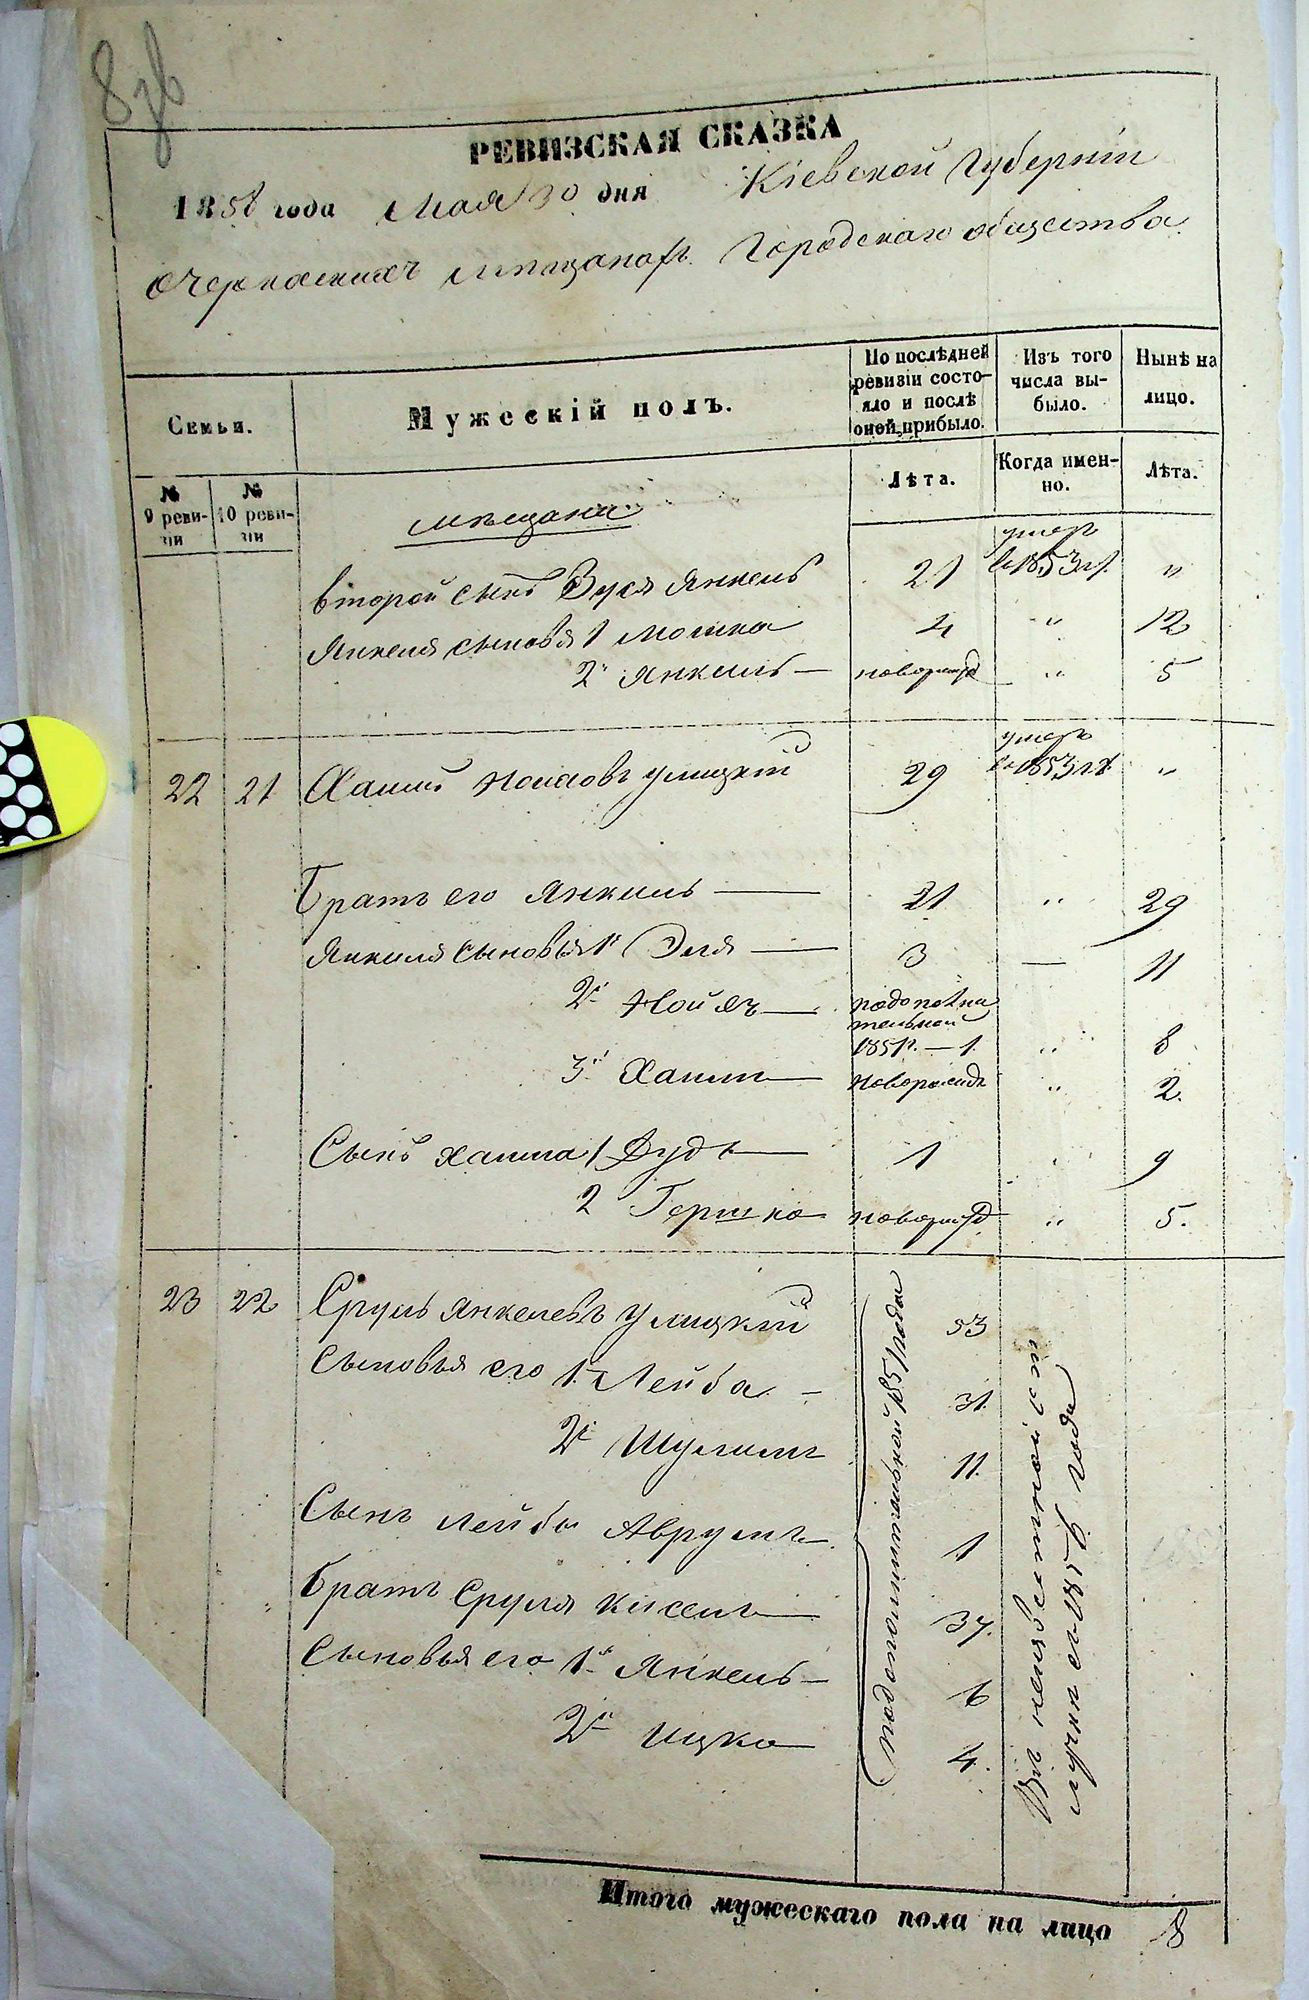 8
РЕВИЗСКАЯ СКАЗКА
1858 года Мая 30 дня Кіевской Губерніи
о черкаскихъ мещанахъ Городскаго общества.
Семьи.
Мужескій полъ.
По послѣдней ревизіи состо-
яло и послѣ
оной прибыло.
Изъ того
числа вы-
было.
Нынѣ на
лицо.
№
9 реви-
зіи
№
10 реви-
зіи
Лѣта.
Когда имен-
но.
Лѣта.
мещане.
второй сынъ Зуся Янкель 21 умеръ в 1853 г. "
Янкеля сыновья 1 Мошко 4 " 12
2й Янкель — новорожд " 5
22 21 Хаимъ Носковъ Улицкій 29 умеръ в 1853 г. "
Братъ его Янкель — 21 " 29
Янкеля сыновья 1й Эля — 3 — 11
2й Нойяхъ — подополни
тельной
1851 г. — 1. " 8
3й Хаимъ — новорожд " 2.
Сынъ Хаима 1 Дудъ — 1 " 9
2 Гершко — новорожд " 5.
23 22 Сруль Янкелевъ Улицкій 53
Сыновья его 1. Лейба — 31.
2й Шулимъ 11.
Сынъ Лейбы Аврумъ — 1
Братъ Сруля Кисель — 37.
Сыновья его 1й Янкель — 6
2й Ицко — 4.
подополнительной 1851 года
В неизвестной от
лучки с 1856 года
Итого мужескаго пола на лицо 8